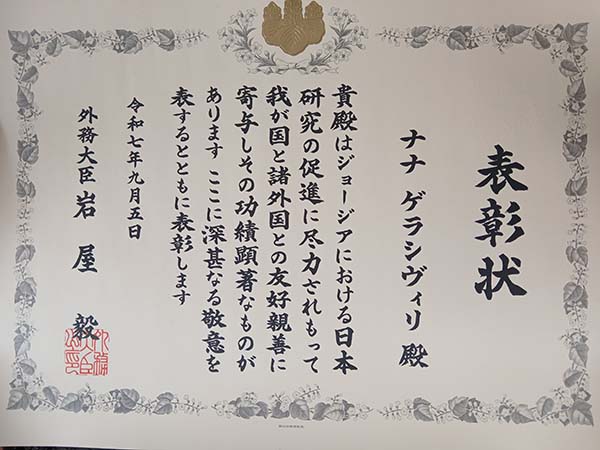 表彰状
ナナ ゲラシヴィリ 殿
貴殿はジョージアにおける日本
研究の促進に尽力されもって
我が国と諸外国との友好親善に
寄与しその功績顕著なものが
あります ここに深甚なる敬意を
表するとともに表彰します
令和七年九月五日
外務大臣 岩屋 毅